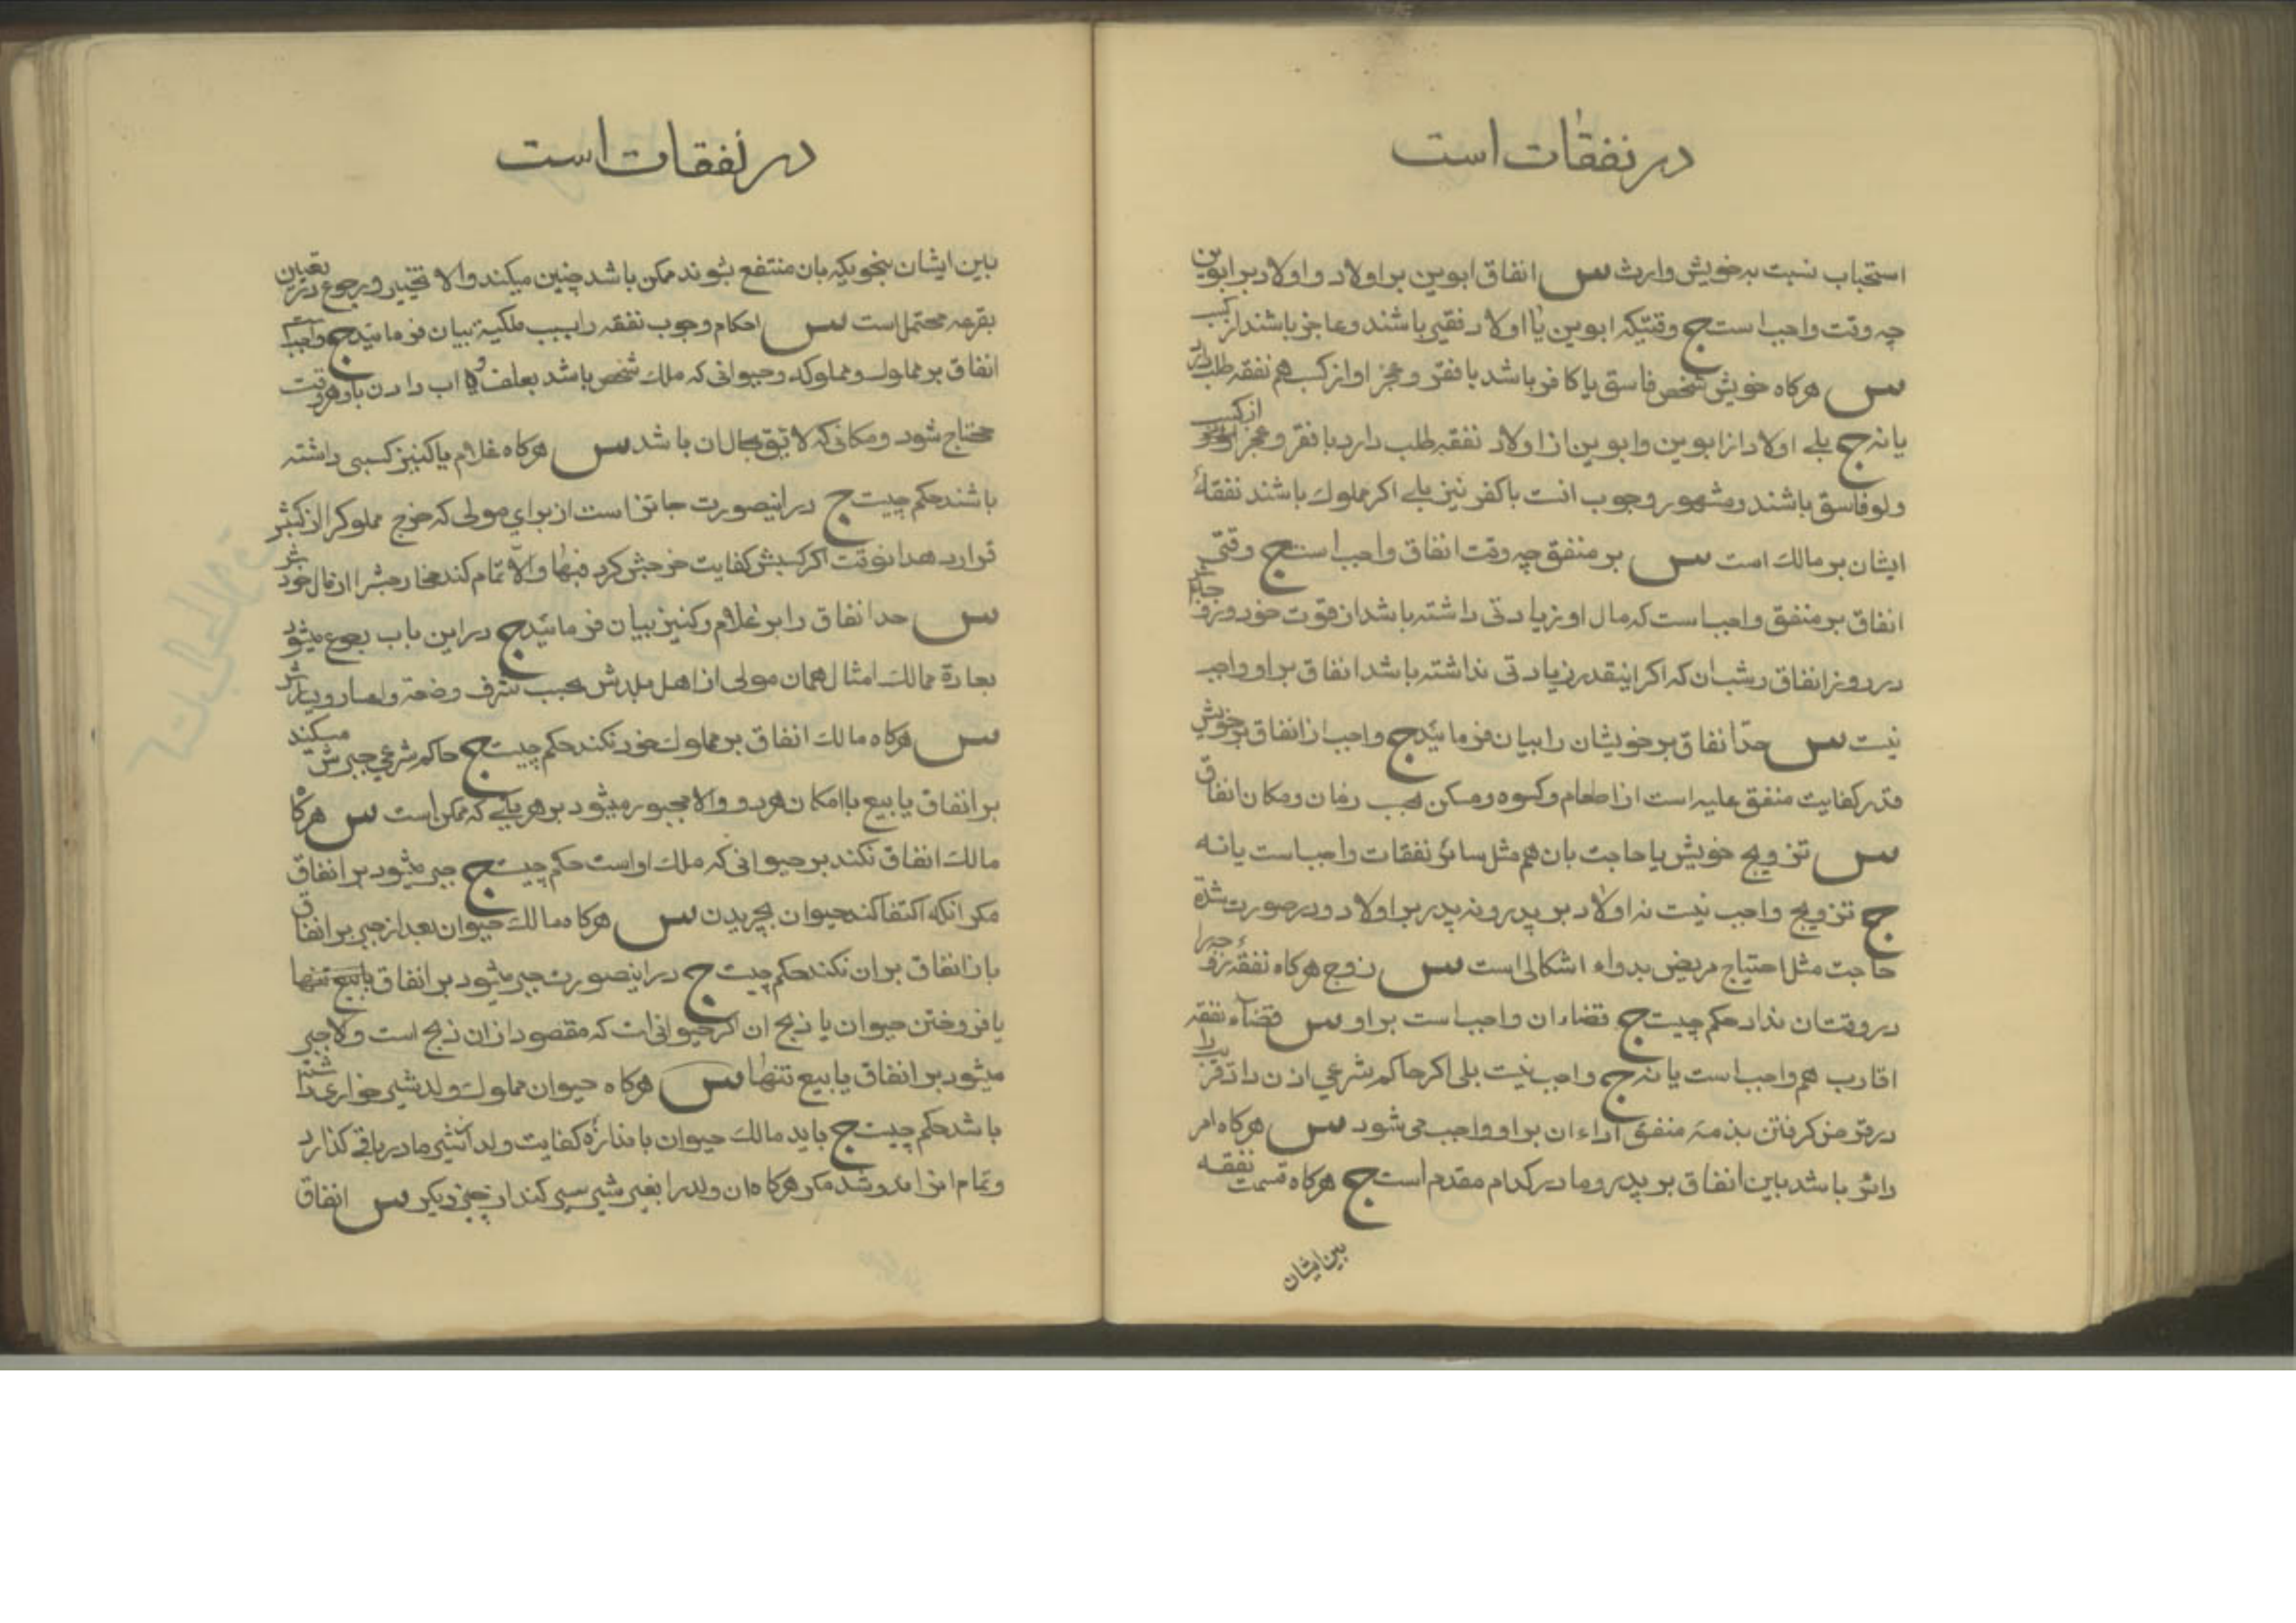 در نفقات است
استحباب نسبت به خویش وارث س انفاق ابوین بر اولاد و اولاد بر ابوین
چه وقت واجب است ج وقتیکه ابوین یا اولاد فقیر باشند و عاجز باشند از کسب
س هرکاه خویش شخص فاسق یا کافر باشد با فقر و عجز او از کسب هم نفقه طلب دارد
یا نه ج بلے اولاد از ابوین و ابوین از اولاد نفقه طلب دارد با فقر و عجز از کسب
ولو فاسق باشند و مشهور وجوب انست با کفر نیز بلے اکر مملوك باشند نفقهٔ
ایشان بر مالك است س بر منفق چه وقت انفاق واجب است ج وقتی
انفاق بر منفق واجب است که مال او زیادتی داشته باشد از قوت خود و زو
در روز انفاق و شب ان که اکر اینقدر زیادتی نداشته باشد انفاق بر او واجب
نیست س حدّ انفاق بر خویشان را بیان فرمائید ج واجب از انفاق بر خویش
قدر کفایت منفق علیه است از اطعام و کسوه و مسکن بحسب زمان و مکان انفاق
س تزویج خویش با حاجت بان هم مثل سائر نفقات واجب است یا نه
ج تزویج واجب نیست نه اولاد بر پدر و نه پدر بر اولاد و در صورت شدة
حاجت مثل احتیاج مریض بدواء اشکال است س زوج هرکاه نفقهٔ زوجه را
در وقتان نداد حکم چیست ج قضاء ان واجب است بر او س قضاء نفقه
اقارب هم واجب است یا نه ج واجب نیست بلی اکر حاکم شرعی اذن داد قریب را
در قرض کرفتن بذمهٔ منفق اداء ان بر او واجب می شود س هرکاه امر
دائر باشد بین انفاق بر پدر و مادر کدام مقدم است ج هرکاه قسمت نفقه
بین ایشان
در نفقات است
بین ایشان بنحویکه بان منتفع شوند ممکن باشد چنین میکند والا تخییر و رجوع در تعیین
بقرعه محتمل است س احکام وجوب نفقه را بسبب ملکیة بیان فرمائید ج واجب
انفاق بر مملوك و مملوکه و حیوانی که ملك شخص باشد بعلف و اب دادن باو هر وقت
محتاج شود و مکانی که لایق بحال ان باشد س هرکاه غلام یا کنیز کسبی داشته
باشند حکم چیست ج در اینصورت جائز است از برای مولی که خرج مملوك را از کسبش
قرار دهد انوقت اکر کسبش کفایت خرجش کرد فبها والّا تمام کند مخارجش را از مال خود
س حد انفاق را بر غلام و کنیز بیان فرمائید ج در این باب رجوع میشود
بعادة ممالك امثال همان مولی از اهل بلدش بحسب شرف و ضعة و اعسار و یسار
س هرکاه مالك انفاق بر مملوك خود نکند حکم چیست ج حاکم شرعی جبرش میکند
بر انفاق یا بیع با امکان هر دو والا مجبور میشود بر هر یکے که ممکن است س هرکاه
مالك انفاق نکند بر حیوانی که ملك او است حکم چیست ج جبر میشود بر انفاق
مکر انکه اکتفا کند حیوان بچریدن س هرکاه مالك حیوان بعد از جبر بر انفاق
باز انفاق بر ان نکند حکم چیست ج در اینصورت جبر میشود بر انفاق یا بیع تنها
یا فروختن حیوان یا ذبح ان اکر حیوانی است که مقصود از ان ذبح است والا جبر
میشود بر انفاق یا بیع تنها س هرکاه حیوان مملوك ولد شیر خواری داشته
باشد حکم چیست ج باید مالك حیوان باندازهٔ کفایت ولد از شیر مادر باقی کذارد
و تمام انرا ندوشد مکر هرکاه ان ولد را بغیر شیر سیر کند از چیز دیکر س انفاق